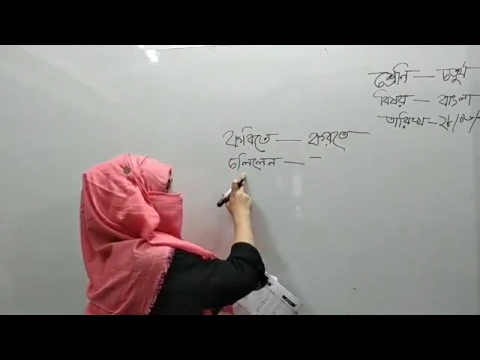 শ্রেনি — চতুর্থ
বিষয় — বাংলা
তারিখ -
করিতে — করতে
চলিলেন —